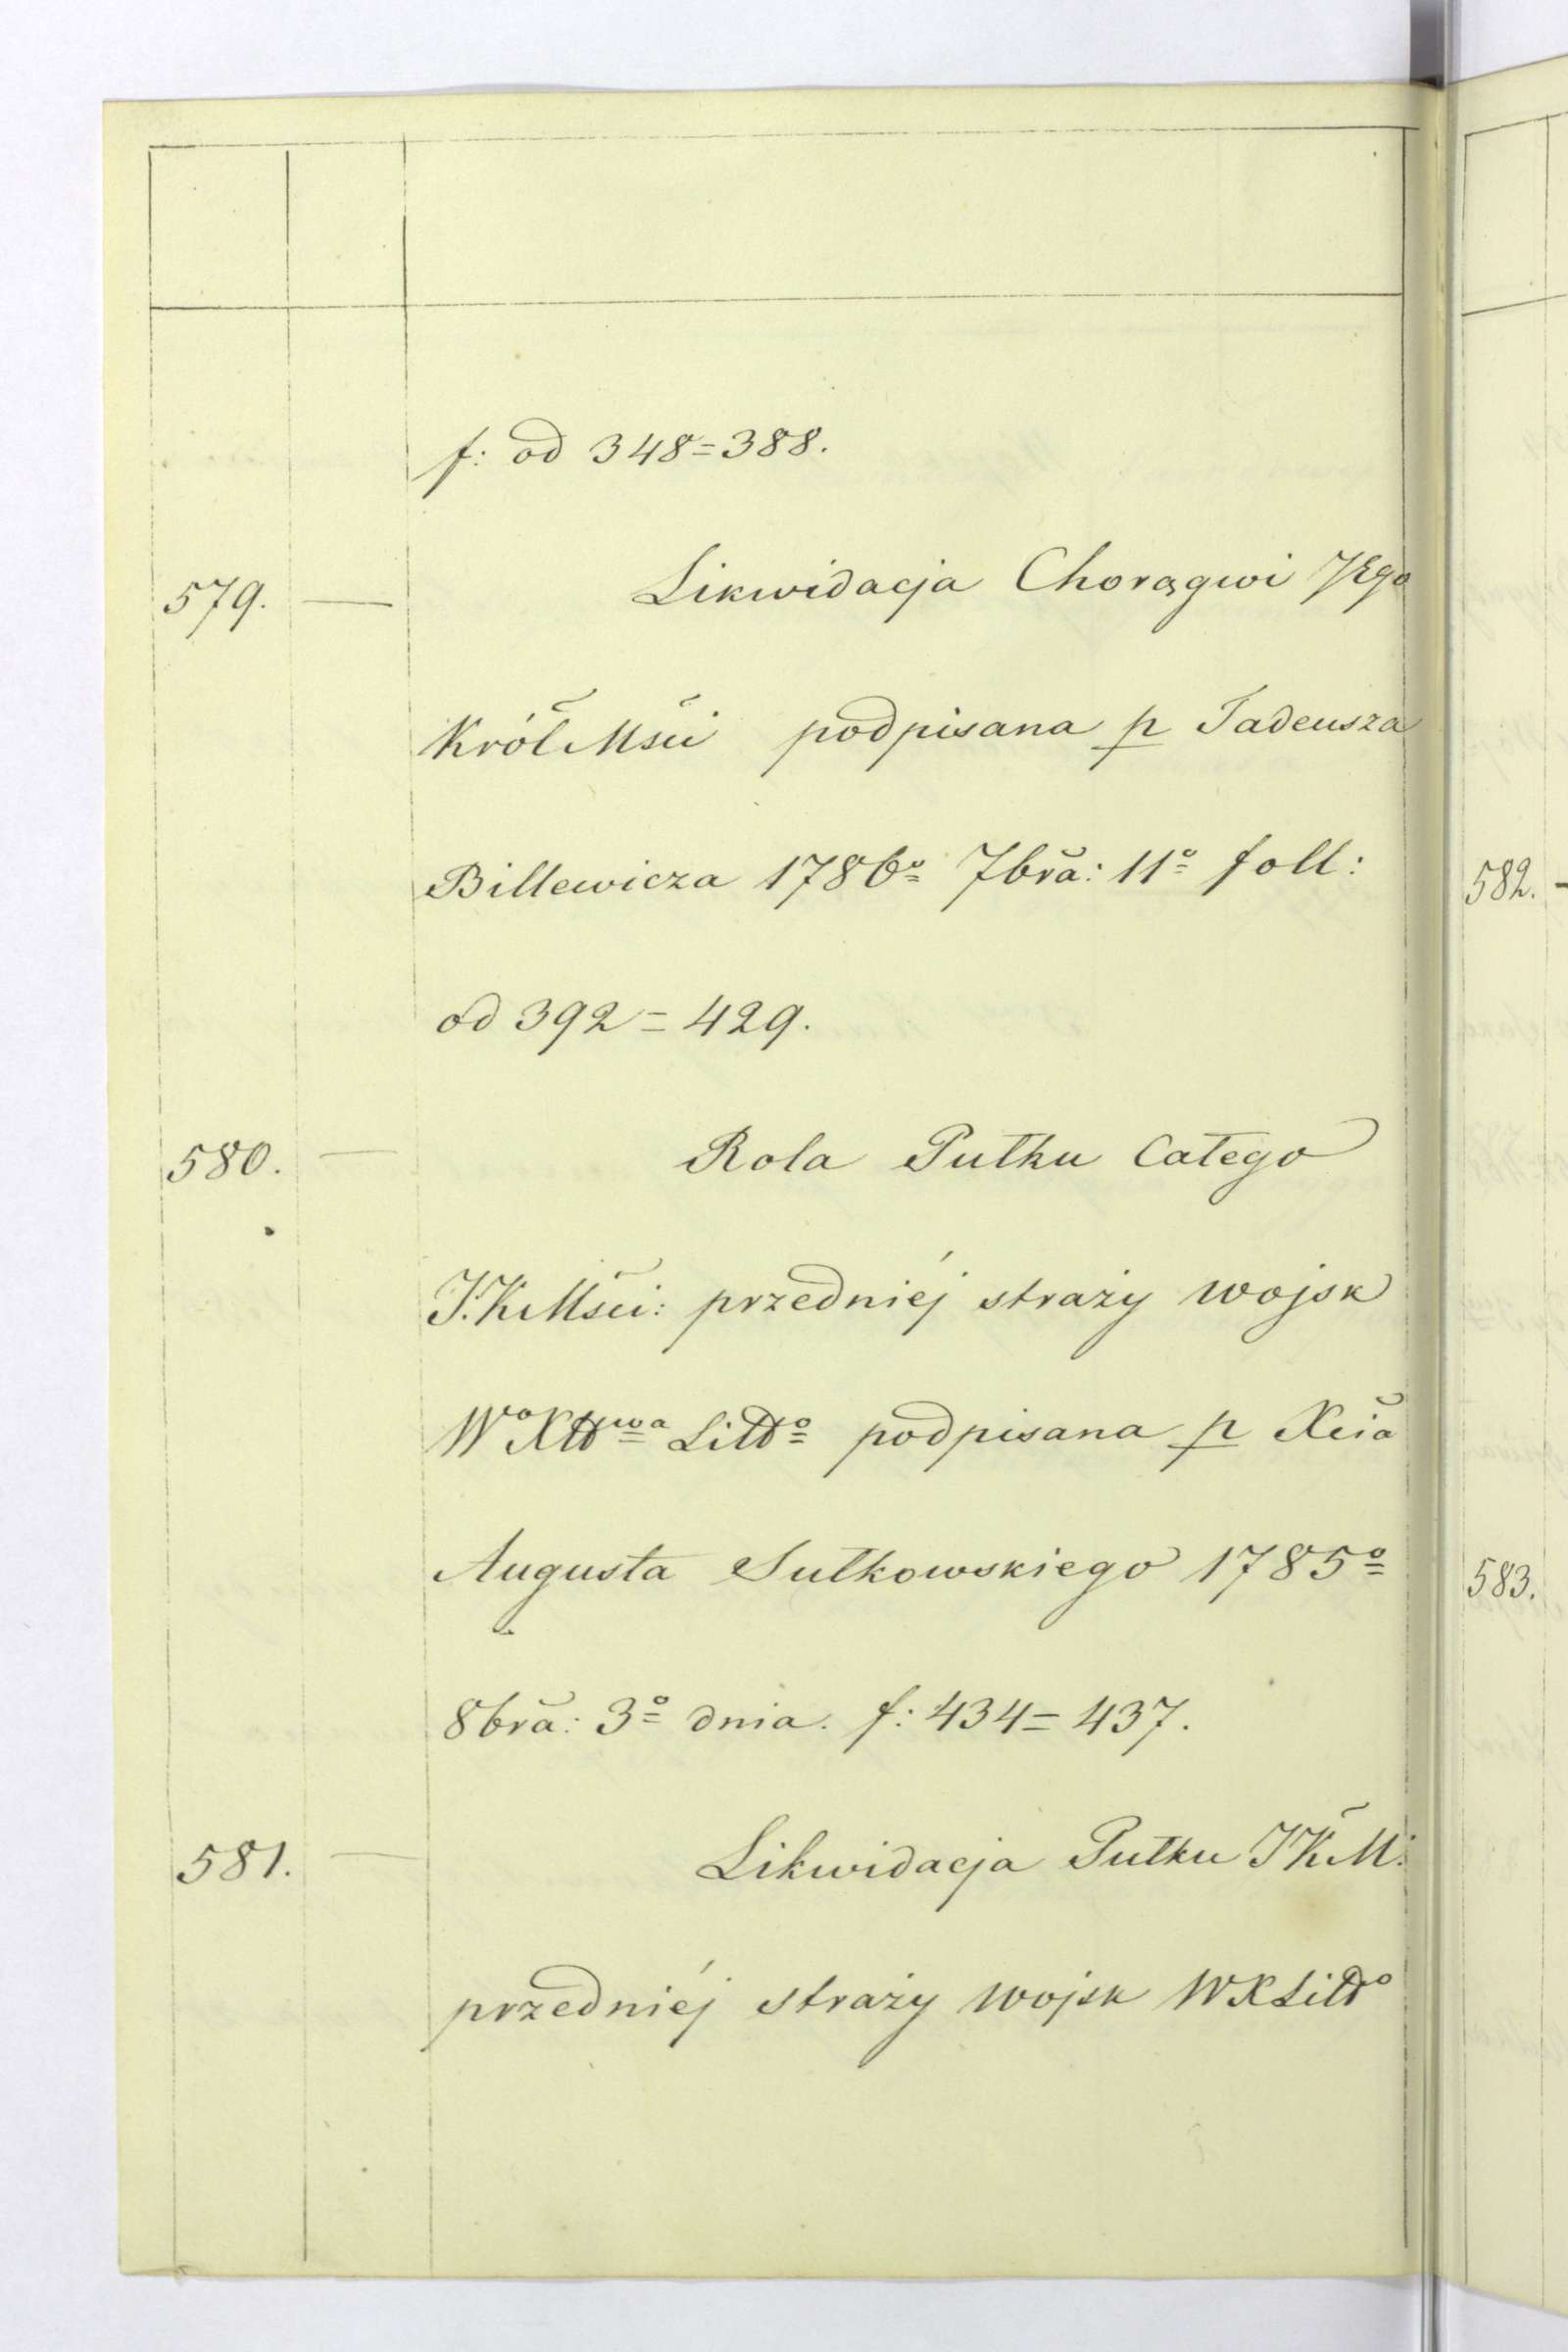 f: od 348=388.
579. — Likwidacja Chorągwi JEgo
Król Mści podpisana p Tadeusza
Billewicza 1786º 7bra: 11º foll:
od 392=429.
580. — Rola Pułku Całego
J.K Mści: przedniéj straży wojsk
Wº Xttwa Littº podpisana p Xcia
Augusta Sułkowskiego 1785º
8bra: 3º dnia. f: 434=437.
581. — Likwidacja Pułku JKM:
przedniéj straży wojsk WXLittº
582. -
583.